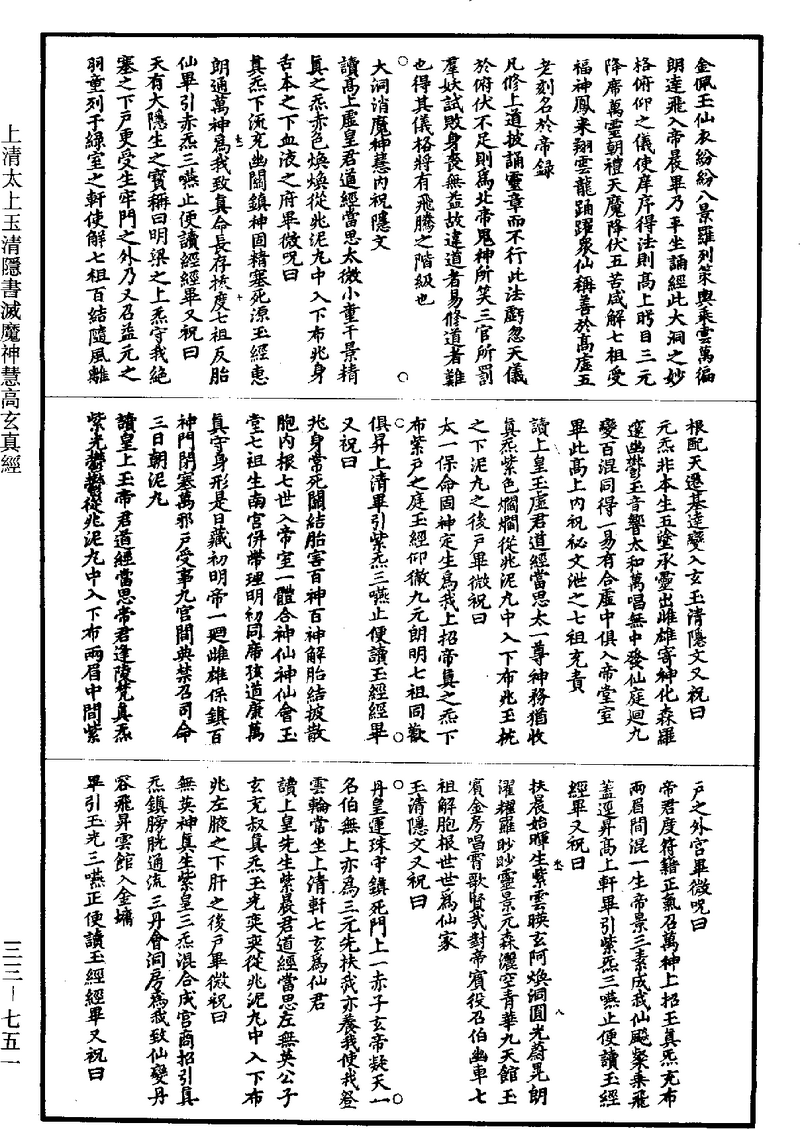 金佩玉仙衣紛紛八景羅列策輿乘雲萬徧
朗達飛入帝晨畢乃平坐誦經此大洞之妙
格俯仰之儀使庠序得法則高上眄目三元
降席萬靈朝禮天魔降伏五苦咸解七祖受
福神鳳來翔雲龍踊躍衆仙稱善於高虛五
老刻名於帝録
凡修上道披誦靈章而不行此法虧忽天儀
於俯伏不足則爲北帝鬼神所笑三官所罰
羣妖試敗身喪無益故違道者易修道者難
也得其儀格將有飛騰之階級也
大洞消魔神慧内祝隱文
讀高上虛皇君道經當思太微小童干景精
真之炁赤色煥煥從兆泥丸中入下布兆身
舌本之下血液之府畢微呪曰
真炁下流充幽關鎮神固精塞死源玉經惠
朗通萬神爲我致真命長存拔度七祖反胎
仙畢引赤炁三嚥止便讀經經畢又祝曰
天有大隱生之寶稱曰明梁之上炁守我絶
塞之下户更受生牢門之外乃又召益元之
羽童列于綠室之軒使解七祖百結隨風離
根配天遷基達變入玄玉清隱文又祝曰
元炁非本生五塗承靈出雌雄寄神化森羅
邃幽鬱玉音響太和萬唱無中發仙庭迴九
變百混同得一易有合虛中俱入帝堂室
畢此高上内祝祕文泄之七祖充責
讀上皇玉虛君道經當思太一尊神務猶收
真炁紫色爛爛從兆泥丸中入下布兆玉枕
之下泥丸之後户畢微祝曰
太一保命固神定生爲我上招帝真之炁下
布紫户之庭玉經仰徹九元朗明七祖同歡
俱昇上清畢引紫炁三嚥止便讀玉經經畢
又祝曰
兆身常死關結胎害百神百神解胎結披散
胞内根七世入帝室一體合神仙神仙會玉
堂七祖生南宫併帶理明初同席孩道康萬
真守身形是日藏初明帝一迴雌雄保鎮百
神門閉塞萬邪户受事九宫間典禁召司命
三日朝泥丸
讀皇上玉帝君道經當思帝君逢陵梵真炁
紫光鬱鬱從兆泥丸中入下布兩眉中間紫
户之外宫畢微呪曰
帝君度符籍正氣召萬神上招玉真炁充布
兩眉間混一生帝景三素成我仙飈粲乘飛
蓋逕昇高上軒畢引紫炁三嚥止便讀玉經
經畢又祝曰
扶晨始暉生紫雲暎玄阿煥洞圓光蔚晃朗
濯耀羅眇眇靈景元森灑空青華九天館玉
賓金房唱霄歌賢哉對帝賓役召伯幽車七
祖解胞根世世爲仙家
玉清隱文又祝曰
丹皇運珠守鎮死門上一赤子玄帝凝天一
名伯無上亦爲三元先扶我亦養我使我登
雲輪當坐上清軒七玄爲仙君
讀上皇先生紫晨君道經當思左無英公子
玄充叔真炁玉光奕奕從兆泥丸中入下布
兆左腋之下肝之後户畢微祝曰
無英神真生紫皇三炁混合成宫商招引真
炁鎮膀胱通流三丹會洞房爲我致仙變丹
容飛昇雲館入金墉
畢引玉光三嚥止便讀玉經經畢又祝曰
上清太上玉清隱書滅魔神慧高玄真經
三三-七五一